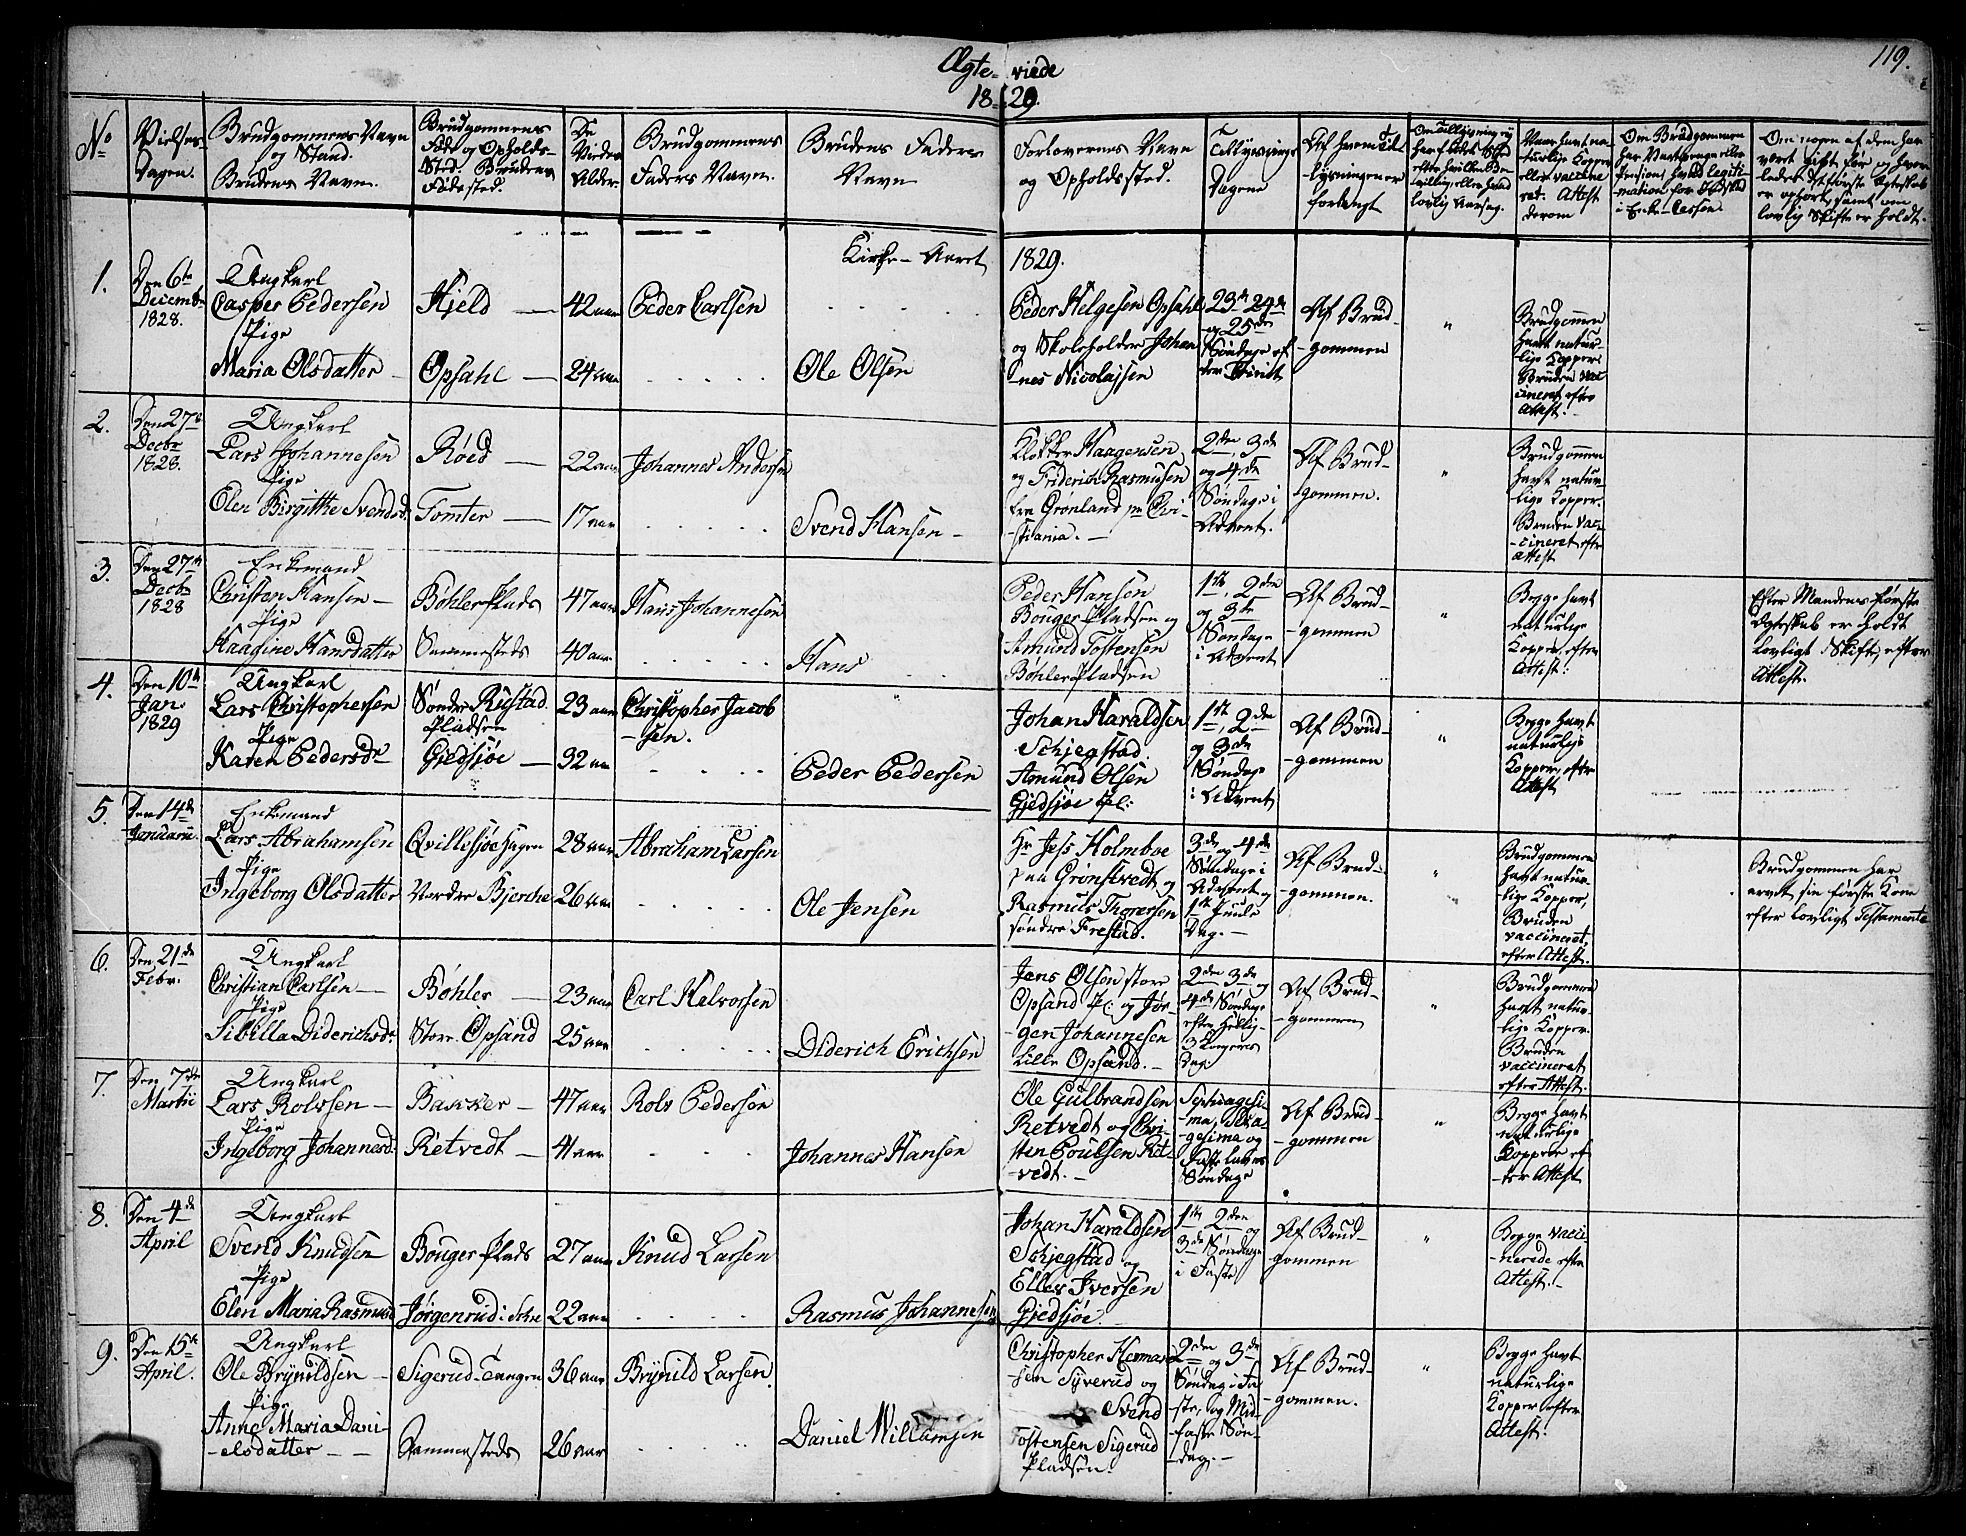 Ægteviede
1829.
119.
No
Vielses-
Dagen.
Brudgommens Navn
og Stand.
Brudens Navn.
Brudgommens
Føde og Opholds-
Sted. Brudens
Fødested.
De
Viedes
Alder
Brudgommens
Faders Navn.
Brudens Faders
Navn
Forlovernes Navn
og Opholdssted.
Tillysnings
Dagene
Af hvem Til-
lysningen er
forlangt
Om Brudgommen
har Vartpenge eller
Pension, hvad legiti-
mation for Indskud
i Enke-Cassen.
Om nogen af dem har
været gift før og hvor-
ledes det første Ægteskab
er ophørt, samt om
lovlig Skifte er holdt.
Kirke-Aaret 1829.
1.
Den 6te
Decemb.
1828.
Ungkarl
Casper Pedersen
Pige
Maria Olsdatter
Hjeld
Opsahl
42 aar
24 aar
Peder Carlsen
Ole Olsen
Peder Helgesen Opsahl
og Skoleholder Johan-
nes Nicolajsen
23de 24de
og 25de
Søndage ef-
ter Trinit
Af Brud-
gommen
Brudgommen
havt natur-
lige Kopper
Bruden vac
cineret efter
Attest.
2.
Den 27de
Decbr
1828.
Ungkarl
Lars Johannesen
Pige
Elen Birgitthe Svendsd.
Røed
Tomter
22 aar
17 aar
Johannes Andersen
Svend Hansen
Klokker Haagensen
og Friderich Rasmusen
fra Grønland pr Chri-
stiania.
2den, 3de
og 4de
Søndage i
Advent.
Af Brud-
gommen.
Brudgommen
havt natur-
lige Kopper.
Bruden vac-
cineret efter
Attest
3.
Den 27de
Decbr
1828
Enkemand
Christen Hansen
Pige
Haagine Hansdatter
Bøhlerplads
Sammesteds
47 aar
40 aar
Hans Johannesen
Hans
Peder Hansen
Bougerpladsen og
Amund Tostensen
Bøhlerpladsen
1ste, 2den
og 3de
Søndage
i Advent
Af Brud-
gommen
Begge havt
naturlige
Kopper, efter
Attest.
Efter Mandens første
Ægteskab er holdt
lovligt Skifte, efter
Attest.
4.
Den 10de
Jan.
1829
Ungkarl
Lars Christophersen
Pige
Karen Pedersdr
Søndre Rustad
Pladsen
Gjedsjøe
23 aar
32 aar
Christopher Jacob
-sen.
Peder Pedersen
Johan Haraldsen
Schjegstad
Amund Olsen
Gjedsjøe Pl:
1ste, 2den
og 3de
Søndage
i Advent
Af Brud-
gommen
Begge havt
naturlige
Kopper, efter
Attest
5.
Den 14de
Januarii.
Enkemand
Lars Abrahamsen
Pige
Ingeborg Olsdatter
Qvillesjøe hagen
Nordre Bjerche
28 aar
26 aar
Abraham Larsen
Ole Jensen
Hr Jess Holmboe
paa Grønstvedt og
Rasmus Thoresen
søndre Frestad.
3de og 4de
Søndage i
Advent og
1ste Juule
Dag.
Af Brud-
gommen.
Brudgommen
havt natur-
lige Kopper,
Bruden
vaccineret,
efter Attest.
Brudgommen har
arvet sin første Kone
efter lovligt Testamente
6.
Den 21de
Febr.
Ungkarl
Christian Carlsen
Pige
Sibilla Diderichsdr
Bøhler
Store Opsand
23 aar
25 aar
Carl Halvorsen
Diderich Erichsen
Jens Olsen store
Opsand Pl: og Jør-
gen Johannesen
Lille Opsand.
2den 3de og
4de Søndage
efter Hellig-
3 Kongers
Dag
Af Brud-
gommen
Brudgommen
havt natur-
lige Kopper.
Bruden
vaccineret
efter Attest.
7.
Den 7de
Martii
Ungkarl
Lars Rolvsen
Pige
Ingeborg Johannesd.
Bakker
Retvedt
47 aar
41 aar
Rolv Pedersen
Johannes Hansen
Ole Gulbrandsen
Retvedt og Chri-
sten Poulsen Ret-
vedt.
Septuagesi-
ma, Sexa-
gesima og
Fastelavns
Søndage
Af Brud-
gommen
Begge havt
naturlige
Kopper ef-
ter Attest
8.
Den 4de
April
Ungkarl
Svend Knudsen
Pige
Elen Maria Rasmusd.
Bouger Plads
Jørgenrud i
27 aar
22 aar
Knud Larsen
Rasmus Johannesen
Johan Haraldsen
Schjegstad og
Elles Iversen
Gjedsjøe
1ste 2den og
3de Søndage
i Faste
Af Brud-
gommen
Begge vacci-
nerede efter
Attest.
9.
Den 15de
April.
Ungkarl
Ole Brynildsen
Pige
Anne Maria Dani-
elsdatter
Sigerud-Tangen
Sammesteds
36 aar
26 aar
Brynild Larsen
Daniel Willumsen
Christopher Herman-
sen Syverud og
Svend
Tostensen Sigerud
Pladsen.
2den og 3de
Søndag i Fa-
ste, og Mid-
faste Søn-
dag.
Af Brud-
gommen.
Begge havt
naturlige
Kopper efter
Attest.